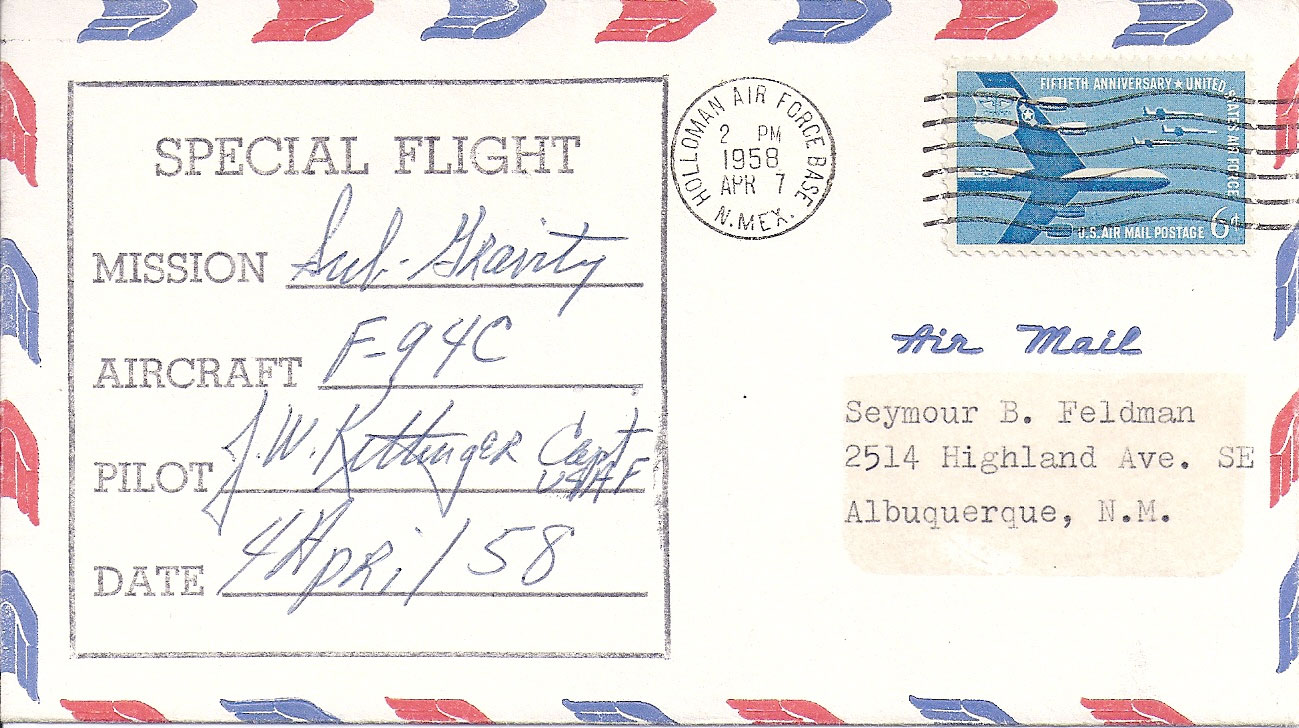 SPECIAL FLIGHT
MISSION Sub-Gravity
AIRCRAFT F-94C
PILOT J. W. Kittinger Capt USAF
DATE 4 April 58
HOLLOMAN AIR FORCE BASE
2 PM
1958
APR 7
N.MEX.
FIFTIETH ANNIVERSARY ★ UNITED STATES AIR FORCE
6¢
U.S. AIR MAIL POSTAGE
Air Mail
Seymour B. Feldman
2514 Highland Ave. SE
Albuquerque, N.M.